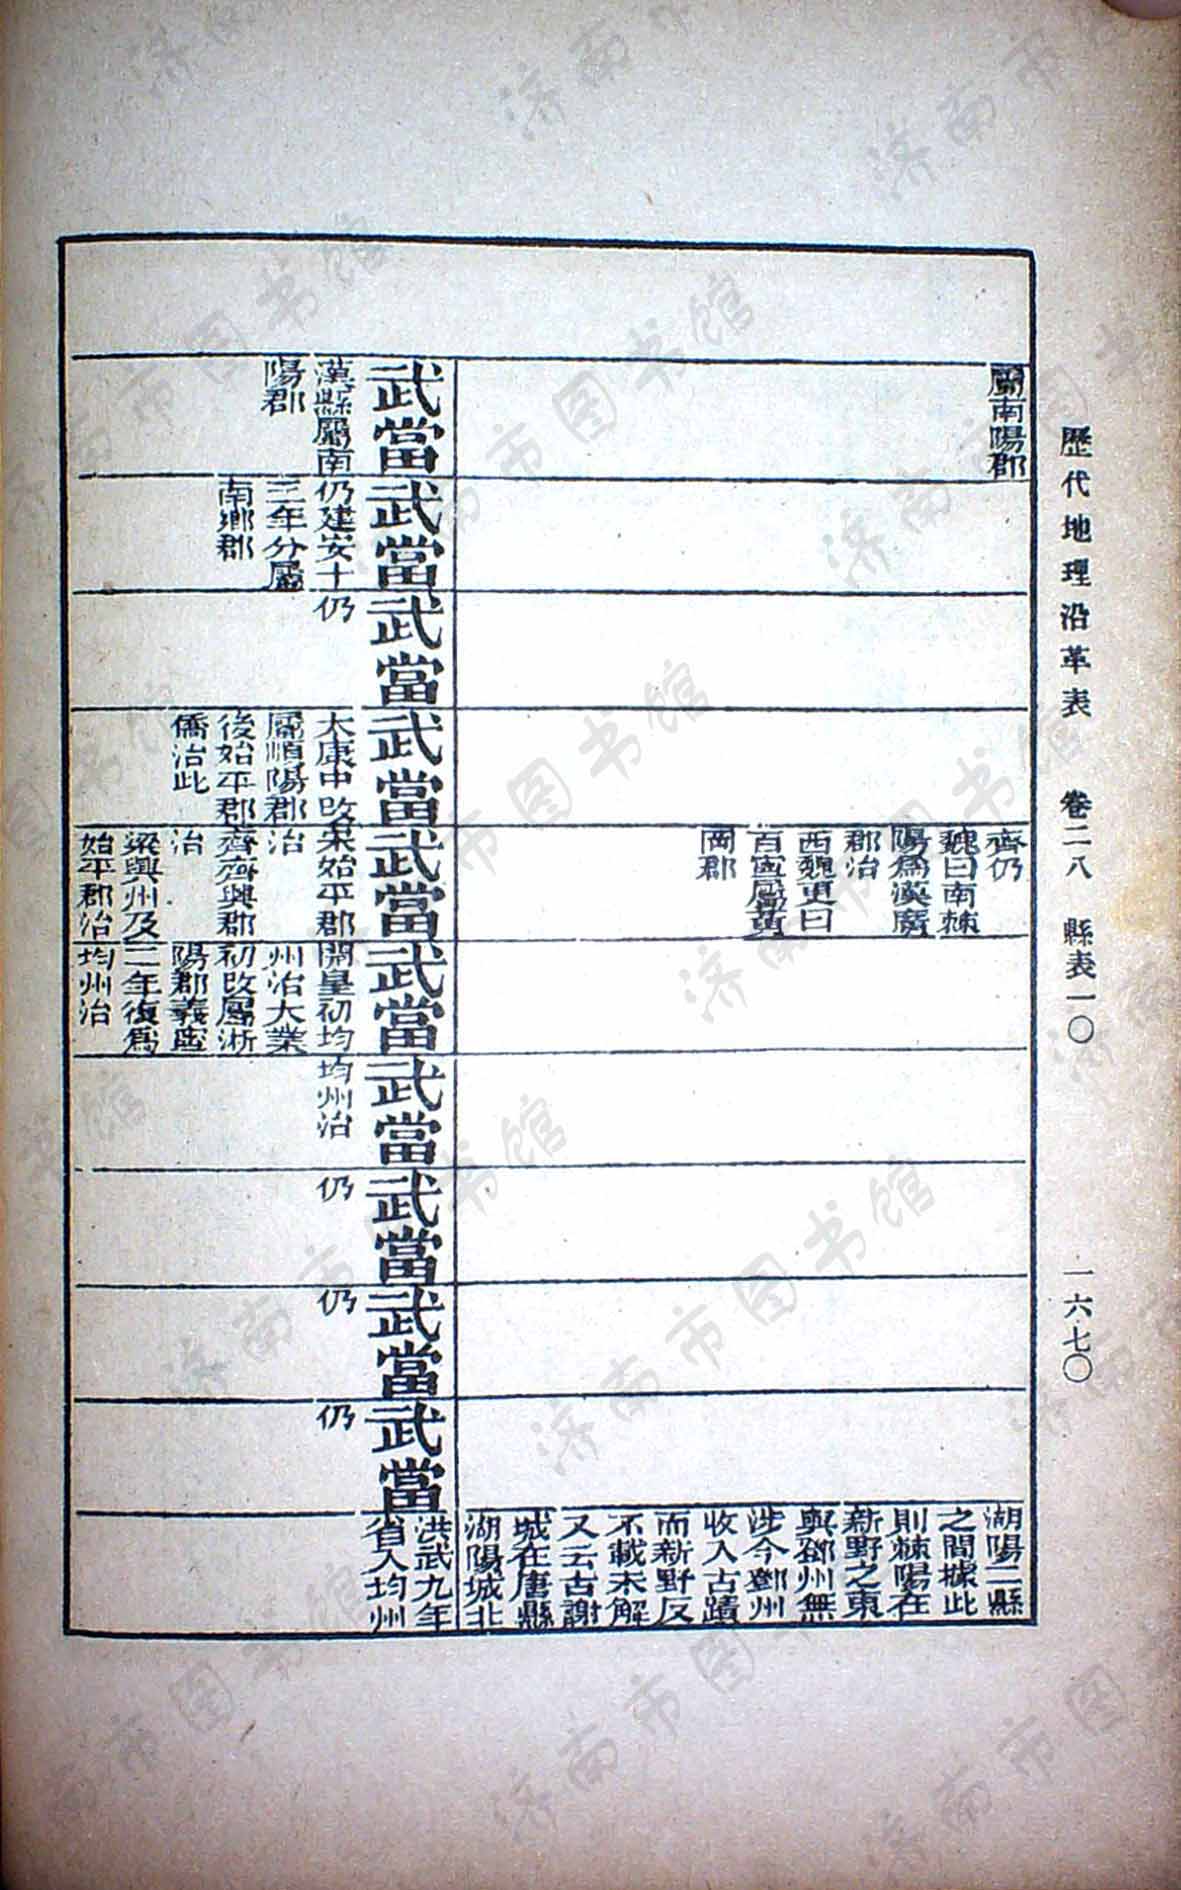 歷代地理沿革表　卷二八　縣表一〇　一六七〇
屬南陽郡
齊仍
魏曰南棘
陽爲漢廣
郡治
西魏更曰
百寧屬黃
岡郡
湖陽二縣
之間據此
則棘陽在
新野之東
與鄧州無
涉今鄧州
收入古蹟
而新野反
不載未解
又云古謝
城在唐縣
湖陽城北
武當
漢縣屬南
陽郡
武當
仍建安十
三年分屬
南鄉郡
武當
仍
武當
太康中改
屬順陽郡
後始平郡
僑治此
武當
宋始平郡
治
齊齊興郡
治
梁興州及
始平郡治
武當
開皇初均
州治大業
初改屬淅
陽郡義寧
二年復爲
均州治
武當
均州治
武當
仍
武當
仍
武當
仍
洪武九年
省入均州
济南市图书馆